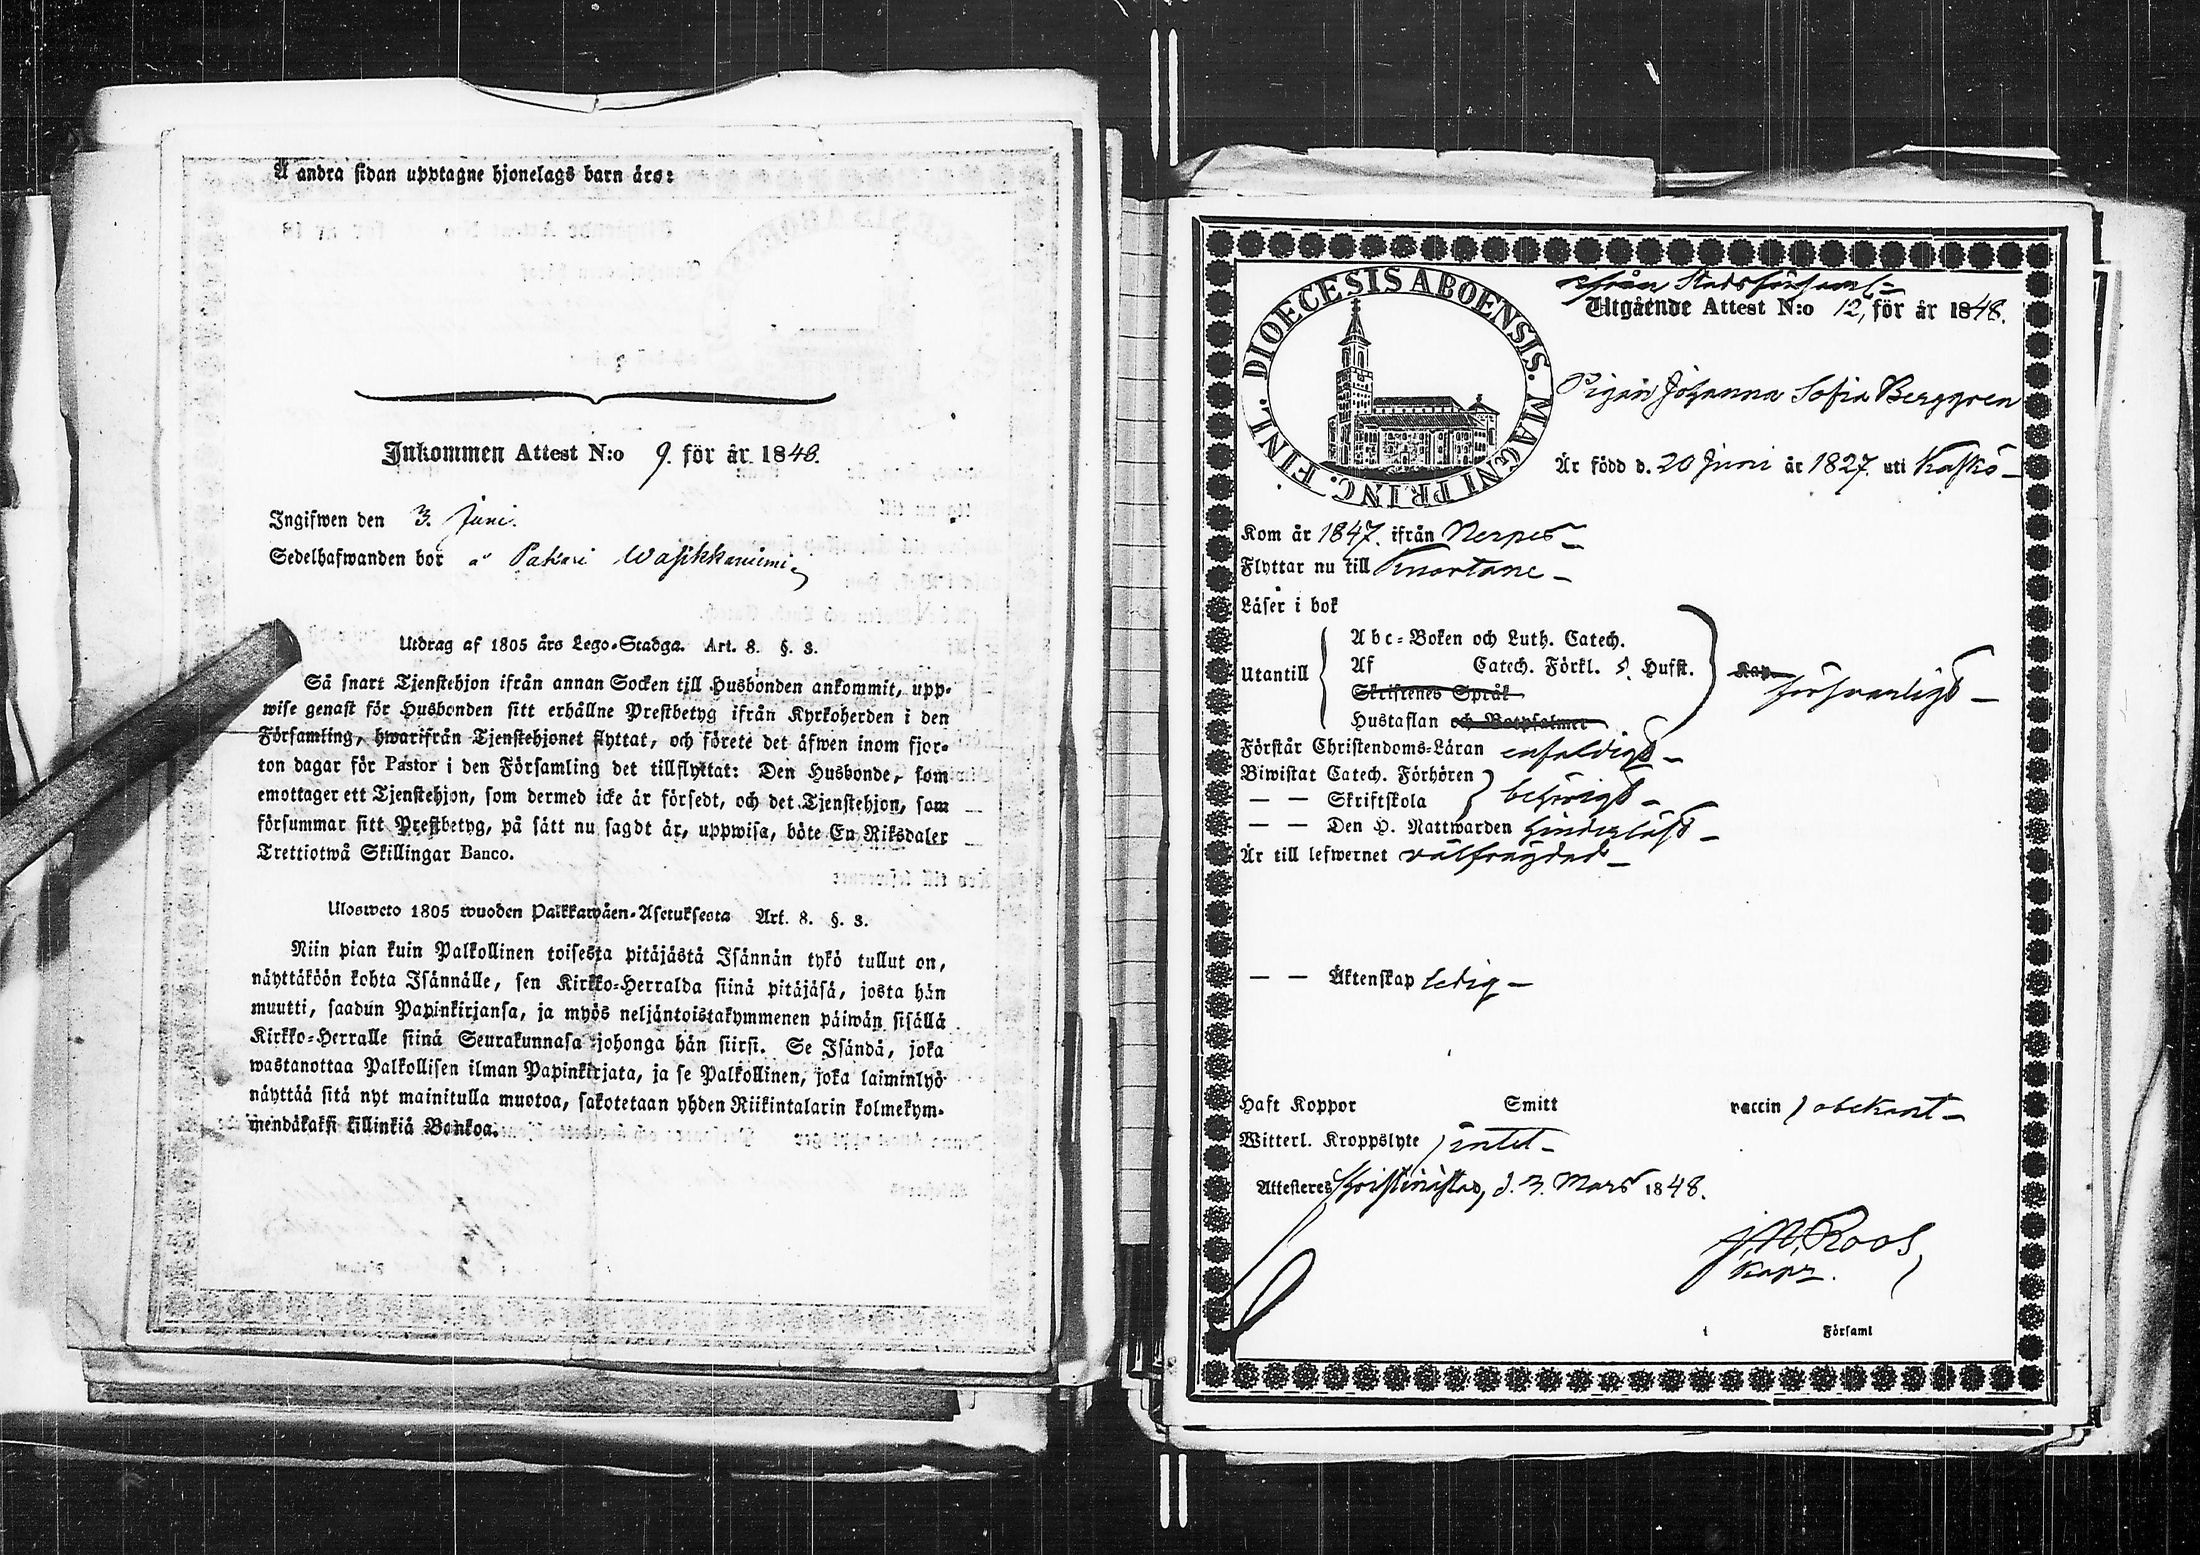 Å andra sidan upptagne hjonelags barn äro:
Inkommen Attest N:o 9. för år 1848.
Ingifwen den 3. Juni.
Sedelhafwanden bor å Pakari Wasikkaniemi
Utdrag af 1805 års Lego-Stadga. Art. 8. §. 3.
Så snart Tjenstehjon ifrån annan Socken till Husbonden ankommit, upp-
wise genast för Husbonden sitt erhållne Prestbetyg ifrån Kyrkoherden i den
Församling, hwarifrån Tjenstehjonet flyttat, och förete det äfwen inom fjor-
ton dagar för Pastor i den Församling det tillflyttat: Den Husbonde, som
emottager ett Tjenstehjon, som dermed icke är försedt, och det Tjenstehjon, som
försummar sitt Prestbetyg, på sätt nu sagdt är, uppwisa, böte En Riksdaler
Trettiotwå Skillingar Banco.
Ulosweto 1805 wuoden Palkkawäen-Asetuksesta Art. 8. §. 3.
Niin pian kuin Palkollinen toisesta pitäjästä Isännän tykö tullut on,
näyttäköön kohta Isännälle, sen Kirkko-Herralda siinä pitäjäsä, josta hän
muutti, saadun Papinkirjansa, ja myös neljäntoistakymmenen päiwän sisällä
Kirkko-Herralle siinä Seurakunnasa johonga hän siirsi. Se Isändä, joka
wastanottaa Palkollisen ilman Papinkirjata, ja se Palkollinen, joka laiminlyö
näyttää sitä nyt mainitulla muotoa, sakotetaan yhden Riikintalarin kolmekym-
mendäkaksi killinkiä Bankoa.
DIOECESIS ABOENSIS. MAGNI PRINC. FINL.
ifrån Stadsförsaml.
Utgående Attest N:o 12, för år 1848.
Pigan Johanna Sofia Berggren
Är född d. 20 Juni år 1827. uti Kaskö
Kom år 1847. ifrån Nerpes
Flyttar nu till Kuortane
Läser i bok
Abc-Boken och Luth. Catech.
Utantill Af Catech. Förkl. 5. Hufst. Kap. försvarligt
Skriftenes Språk
Hustaflan och Botpsalmer
Förstår Christendoms-Läran enfaldigt
Biwistat Catech. Förhören
— — Skriftskola behörigt
— — Den H. Nattwarden hinderlöst
Är till lefwernet välfrägdad
— — Äktenskap ledig
Haft Koppor Smitt vaccin obekant
Witterl. Kroppslyte intet
Attesteres Kristinestad, d. 3. Mars 1848.
J. W. Roos
Kapl.
i Församl